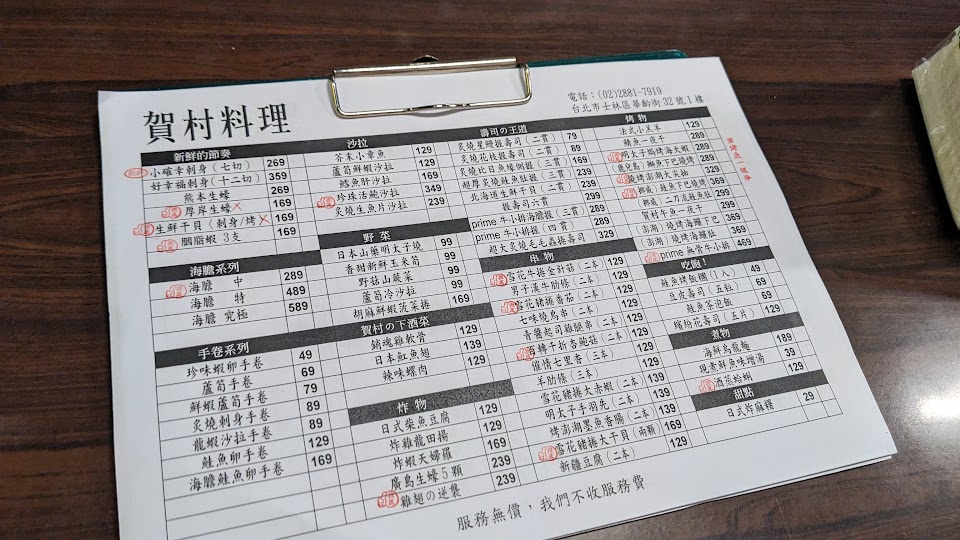 賀村料理
電話：(02)2881-7919
台北市士林區華齡街32號1樓
新鮮的節奏
小確幸刺身(七切) 269
好幸福刺身(十二切) 359
熊本生蠔 269
厚岸生蠔 169
生鮮干貝(刺身/烤) 169
胭脂蝦 3支 169
海膽系列
海膽 中 289
海膽 特 489
海膽 究極 589
手卷系列
珍味蝦卵手卷 49
蘆筍手卷 69
鮮蝦蘆筍手卷 79
炙燒刺身手卷 89
龍蝦沙拉手卷 89
鮭魚卵手卷 129
海膽鮭魚卵手卷 169
沙拉
芥末小章魚 129
蘆筍鮮蝦沙拉 129
鱈魚肝沙拉 169
珍珠活鮑沙拉 349
炙燒生魚片沙拉 239
野菜
日本山藥明太子燒 99
香甜新鮮玉米筍 99
野菇山蔬菜 99
蘆筍冷沙拉 99
胡麻鮮蝦菠菜捲 169
賀村の下酒菜
銷魂雞軟骨 129
日本魟魚翅 139
辣味螺肉 129
炸物
日式柴魚豆腐 129
炸雞龍田揚 129
炸蝦天婦羅 169
廣島生蠔5顆 239
雞翅の逆襲 239
壽司の王道
炙燒星鰻握壽司(二貫) 79
炙燒花枝握壽司(二貫) 89
炙燒比目魚緣側握(三貫) 169
超厚炙燒鮭魚肚握(三貫) 189
北海道生鮮干貝(二貫) 239
握壽司六貫 239
prime 牛小排海膽握(三貫) 289
prime 牛小排握(四貫) 299
超大炙燒毛毛蟲握壽司 329
串物
雪花牛捲金針菇(二本) 129
男子漢牛肋條(二本) 129
雪花豬捲番茄(二本) 129
七味燒鳥串(二本) 129
青醬起司雞腿串(二本) 129
百轉千折杏鮑菇(二本) 129
催情七里香(三本) 129
羊肋條(三本) 129
雪花豬捲大赤蝦(二本) 139
明太子手羽先(二本) 139
烤澎湖墨魚香腸(二本) 139
雪花豬捲大干貝(兩顆) 169
新疆豆腐(二本) 129
烤物
法式小羔羊 129
鯖魚一夜干 289
明太子焗烤海大蝦 289
鹿兒島)鰤魚下巴燒烤 289
燒烤澎湖大尖抽 329
挪威)鮭魚下巴燒烤 369
挪威)二刀流鮭魚肚 299
賀村午魚一夜干 299
澎湖)燒烤海鱺下巴 369
澎湖)燒烤海鱺肚 369
prime 無骨牛小排 469
吃飽！
鮭魚炒飯團(1人) 49
豆皮壽司(五粒) 69
鮭魚茶泡飯 69
繽紛花壽司(五片) 129
煮物
海鮮烏龍麵 189
現煮鮮魚味增湯 39
酒蒸蛤蜊 129
甜點
日式炸麻糬 29
服務無價，我們不收服務費